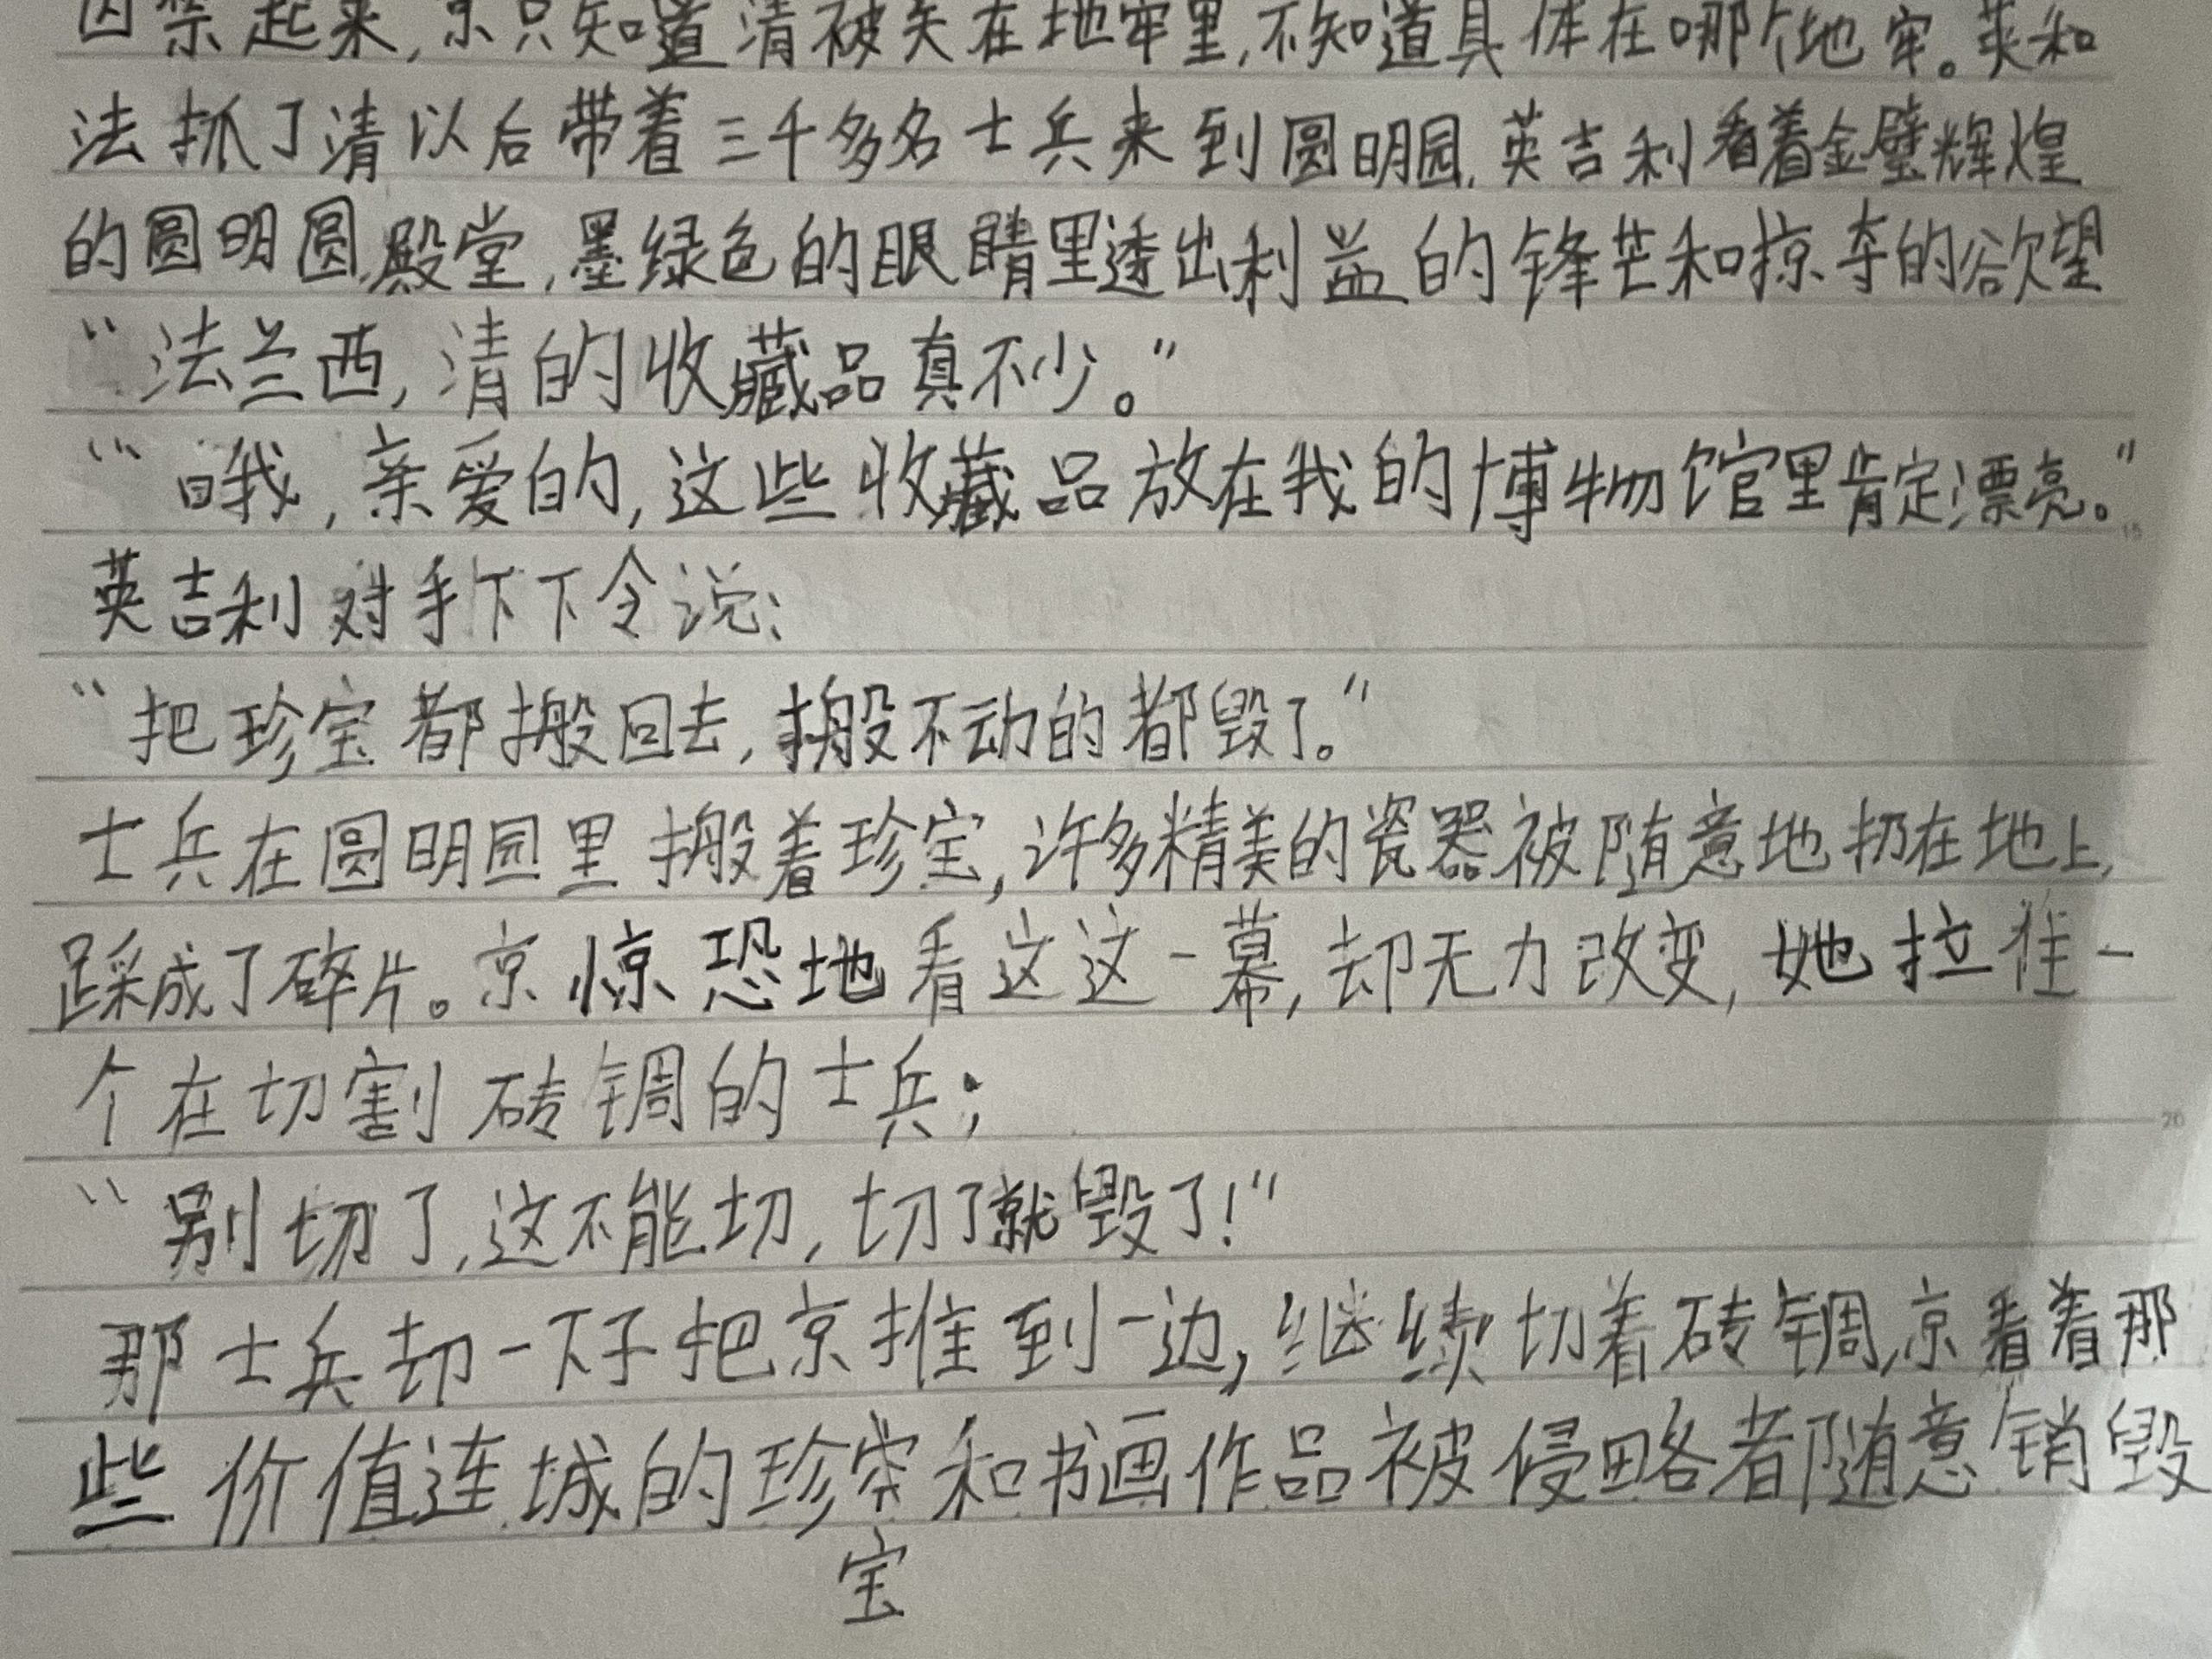 囚禁起来,京只知道清被关在地牢里,不知道具体在哪个地牢。英和
法抓了清以后带着三千多名士兵来到圆明园,英吉利看着金璧辉煌
的圆明圆殿堂,墨绿色的眼睛里透出利益的锋芒和掠夺的欲望
“法兰西,清的收藏品真不少。”
“哦,亲爱的,这些收藏品放在我的博物馆里肯定漂亮。”
英吉利对手下下令说:
“把珍宝都搬回去,搬不动的都毁了。”
士兵在圆明园里搬着珍宝,许多精美的瓷器被随意地扔在地上,
踩成了碎片。京惊恐地看这这一幕,却无力改变,她拉住一
个在切割砖锎的士兵;
“别切了,这不能切,切了就毁了!”
那士兵却一下子把京推到一边,继续切着砖锎,京看着那
些价值连城的珍宝和书画作品被侵略者随意销毁
宝
15
20